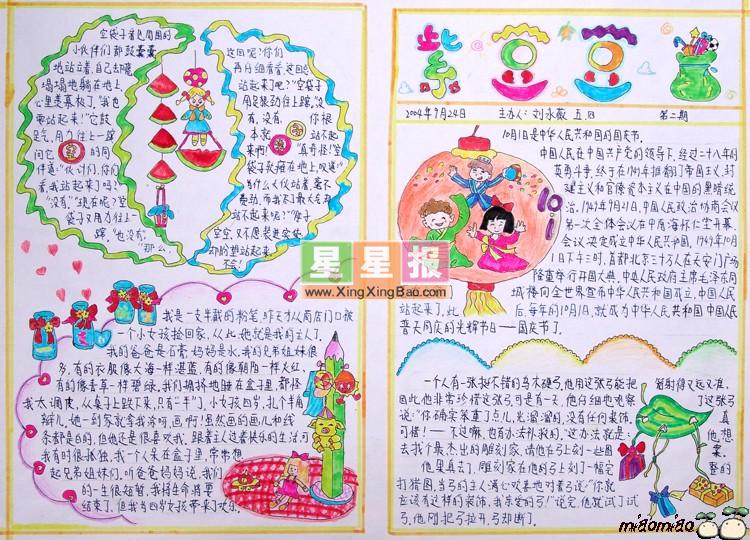 空袋子看见周围的
小伙伴们都鼓囊囊
地站立着,自己却瘪
塌塌地躺在地上,
心里羡慕极了。“我也
要站起来!”它鼓
足气,用力往上一蹿
问它的同
伴道:“伙计们,你们
看我站起来了吗?”
“没有。”“现在呢?”空
袋子又用力往上一
蹿,“也没有。”
“那么,
这回呢?你们
再仔细看看,这回总
站起来了吧?”空袋子
用足狠劲往上蹿。“没
有,没有,你根
本就站不起
来啊!”“真奇怪!”空
袋子软瘫在地上,叹道:“
为什么人伙站着,毫不
费劲,而我花了最大毛力
站不起来呢?”
空空,又不愿装进实货
却盼望站起来,
不会!
我是一支半截的粉笔,昨天才从商店门口被
一个小女孩捡回家,从此,她就是我的主人了。
我的爸爸是石膏,妈妈是水,我的兄弟姐妹很
多,有的衣服像大海一样湛蓝,有的像朝阳一样火红,
有的像青草一样碧绿,我们拥挤地睡在盒子里,都怪
我太调皮,从桌子上跌下来,只有“半了”。小女孩四岁,扎个羊角
辫儿,她一到家就教我涂呀,画啊!虽然画的画儿和线
条都是白的,但她还是很喜欢我,跟着主人过着快乐的生活可
我有时很孤独,我一个人呆在盒子里,常常想
起兄弟姐妹们。听爸爸妈妈说,我们
的一生很短暂,我将生命将要
结束了,但我当四岁女孩带来了欢乐。
紫豆豆
2004年9月24日 主办人:刘永薇 五.四 第二期
10月1日是中华人民共和国的国庆节。
中国人民在中国共产党的领导下,经过二十八年的
英勇斗争,终于在1949年推翻了帝国主义、封
建主义和官僚资本主义在中国的黑暗统
治,1949年9月21日,中国人民政治协商会议
第一次全体会议在中南海怀仁堂开幕
会议决定成立中华人民共和国,1949年10月
1日下午三时,首都北京三十万人在天安门广场
隆重举行开国大典,中央人民政府主席毛泽东同
城楼向全世界宣布中华人民共和国成立,中国人民
站起来了,此后,每年的10月1日,就成为中华人民共和国中国人民
普天同庆的光辉节日——国庆节了。
10.1
星星报
www.XingXingBao.com
一个人有一张挺不错的乌木硬弓,他用这张弓能把箭射得又远又准,
因此,他非常珍惜这张弓,可是有一天,他仔细地观察了这张弓
说:“你确实笨重了点儿,光溜溜的,没有任何装饰,真
可惜!——不过嘛,也有办法补救的,”这办法就是:他想
去找个最杰出的雕刻家,请他在弓上刻一些图案,
他果真去了,雕刻家在他的弓上刻了一幅完整的
打猎图,当弓的主人满心欢喜地对着弓说:“你就
应该有这样的装饰,我亲爱的弓!”说完,他就试了试
弓,他刚把弓拉开,弓却断了。
miaomiao